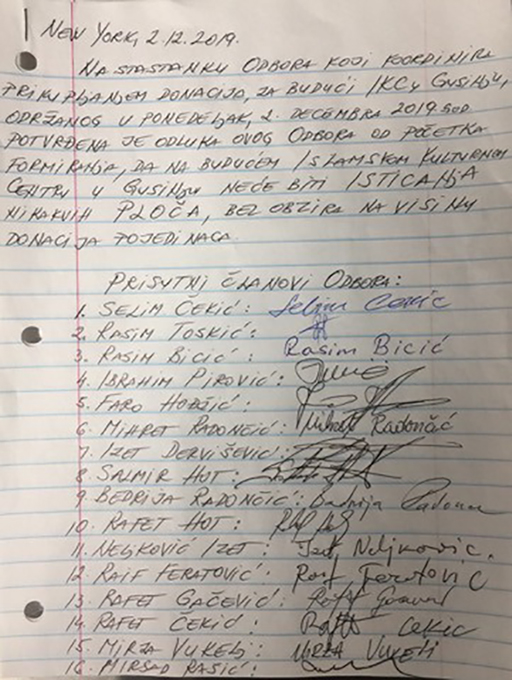 NEW YORK, 2.12.2019.
NA STASTANKU ODBORA KOJI KOORDINIRA
PRIKUPLJANJEM DONACIJA, ZA BUDUĆI IKC U GUSINJU,
ODRŽANOG U PONEDELJAK, 2. DECEMBRA 2019 GOD
POTVRĐENA JE ODLUKA OVOG ODBORA OD POČETKA
FORMIRANJA, DA NA BUDUĆEM ISLAMSKOM KULTURNOM
CENTRU U GUSINJU NEĆE BITI ISTICANJA
NIKAKVIH PLOČA, BEZ OBZIRA NA VISINU
DONACIJA POJEDINACA.
PRISUTNI ČLANOVI ODBORA:
1. SELIM ČEKIĆ: Selim Cekic
2. RASIM TOSKIĆ:
3. RASIM BICIĆ: Rasim Bicić
4. IBRAHIM PIROVIĆ:
5. FARO HODŽIĆ:
6. MIHRET RADONČIĆ: Radončić
7. IZET DERVIŠEVIĆ:
8. SALMIR HOT:
9. BEDRIJA RADONČIĆ: Bedrija
10. RAFET HOT:
11. NELJKOVIĆ IZET: Izet Neljkovic.
12. RAIF FERATOVIĆ: Raif Feratović
13. RAFET GAČEVIĆ:
14. RAFET CEKIĆ: Rafet CEKIC
15. MIRZA VUKELJ: MIRZA VUKELJ
16. MIRSAD RAŠIĆ: